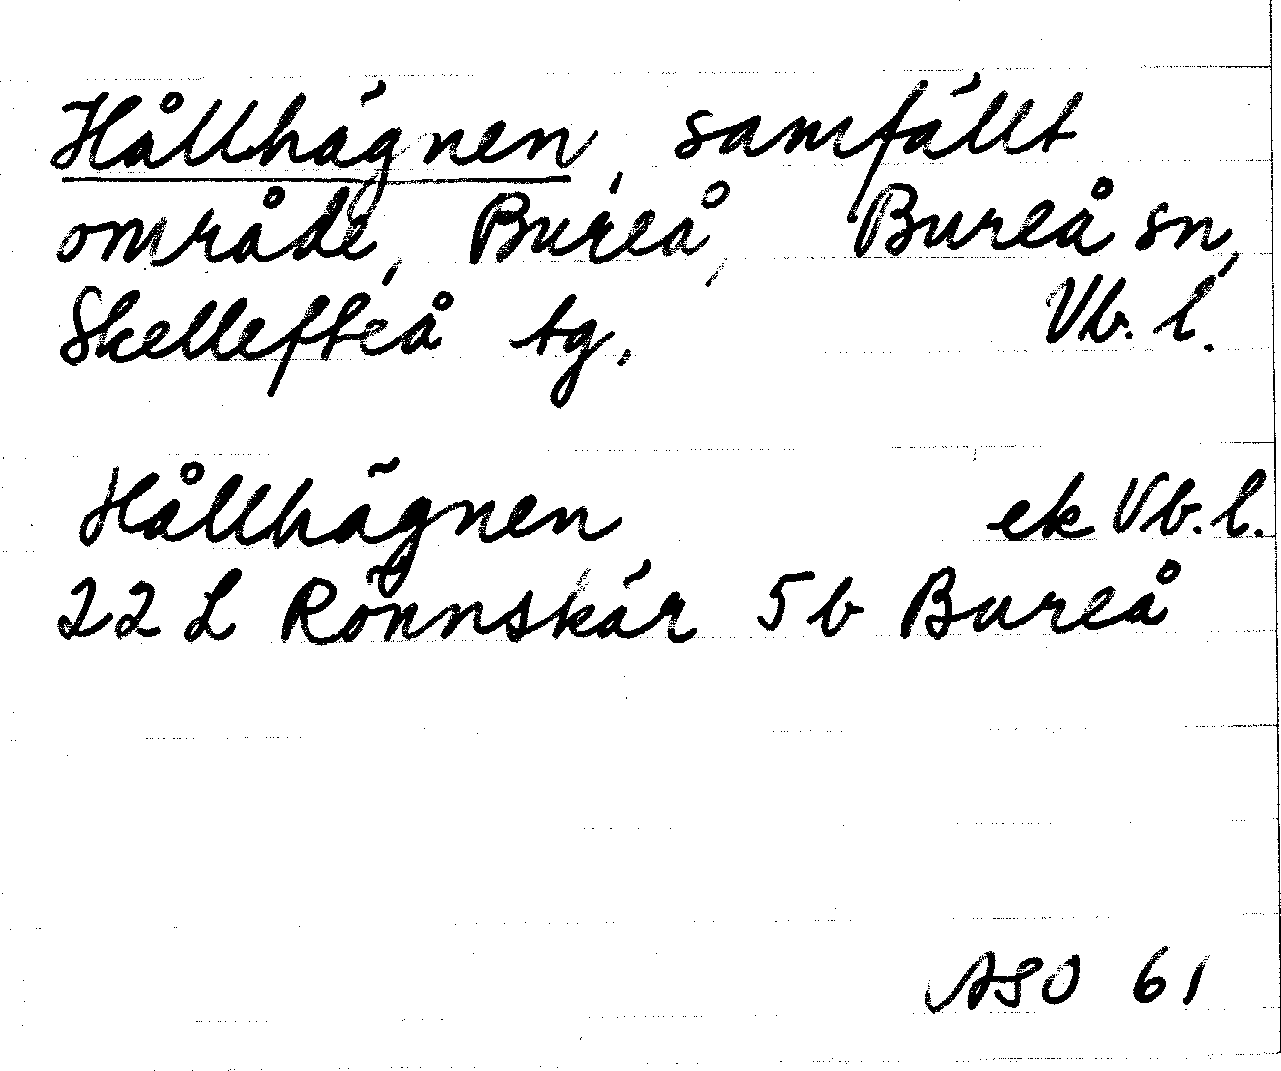 Hållhägnen, samfällt
område, Bureå, Bureå sn,
Skellefteå tg. Vb. l.
Hållhägnen ek Vb. l.
22 L Rönnskär 5 b Bureå
ASO 61